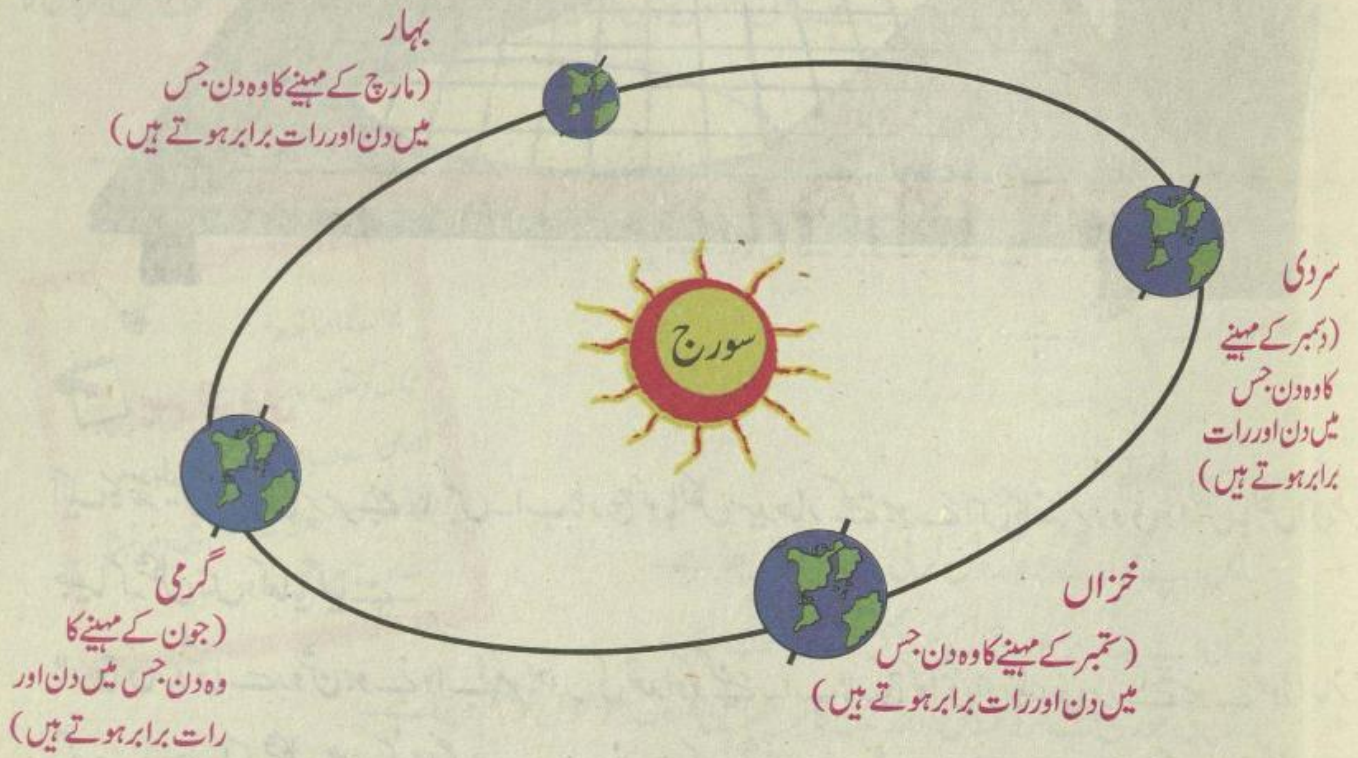 بہار
(مارچ کے مہینے کا وہ دن جس
میں دن اور رات برابر ہوتے ہیں)
سورج
سردی
(دسمبر کے مہینے
کا وہ دن جس
میں دن اور رات
برابر ہوتے ہیں)
خزاں
(ستمبر کے مہینے کا وہ دن جس
میں دن اور رات برابر ہوتے ہیں)
گرمی
(جون کے مہینے کا
وہ دن جس میں دن اور
رات برابر ہوتے ہیں)